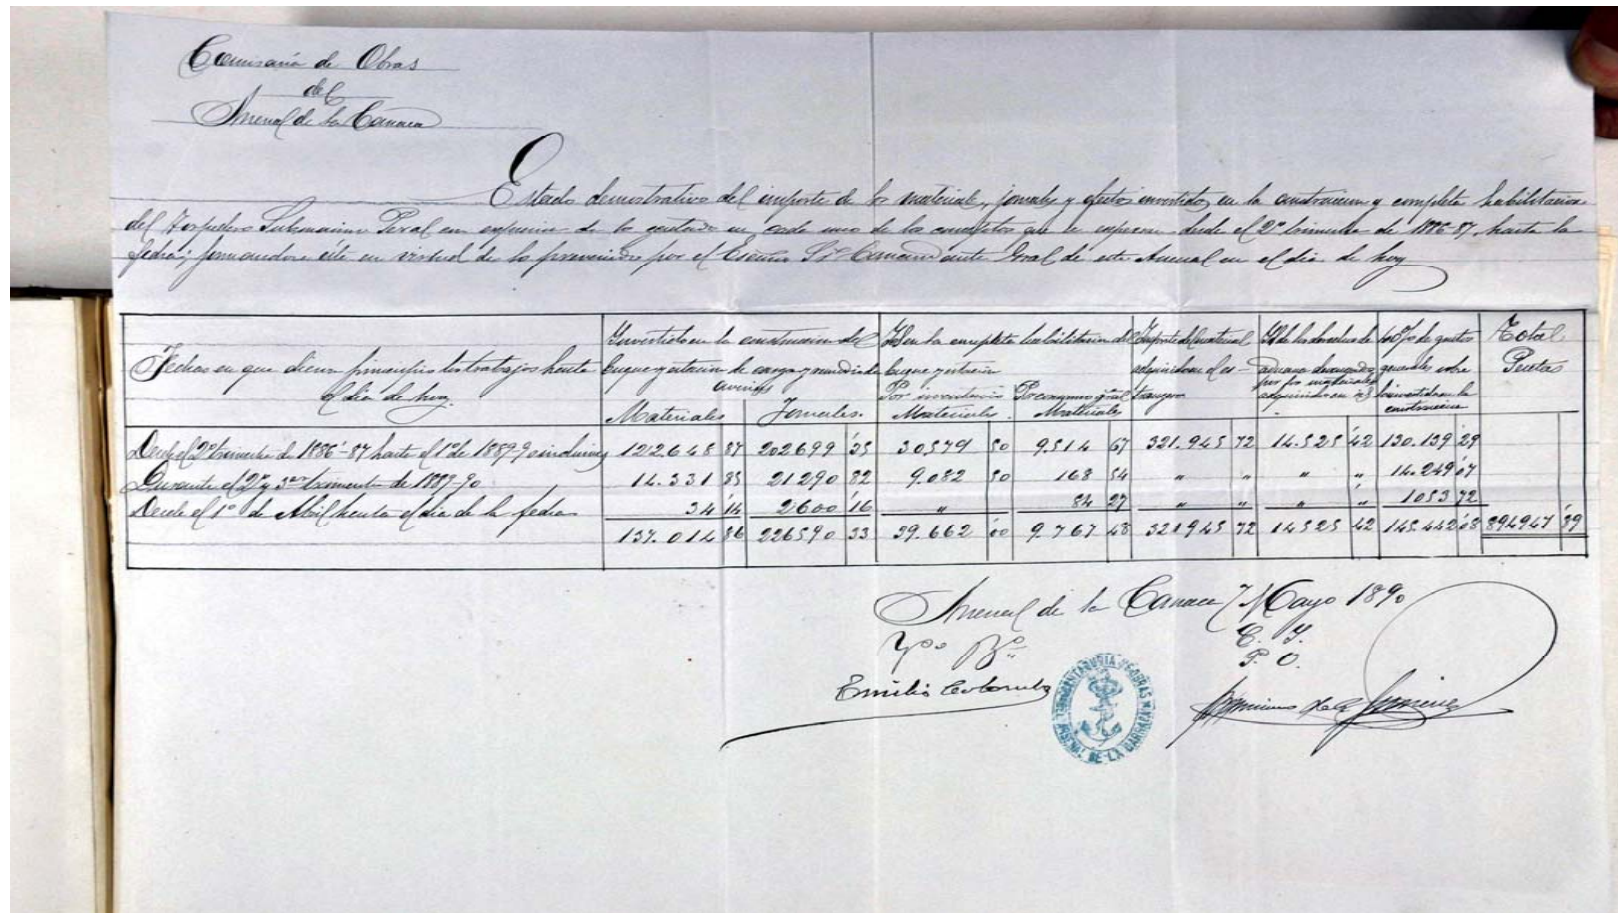 Comisaría de Obras
del
Arsenal de la Carraca
Estado demostrativo del importe de los materiales, jornales y efectos invertidos en la construccion y completa habilitacion
del Torpedero Submarino Peral con expresion de lo gastado en cada uno de los conceptos que se expresan desde el 2º trimestre de 1886-87 hasta la
fecha; formandose éste en virtud de lo prevenido por el Excmo Sr Comandante Gral de este Arsenal en el dia de hoy
Fechas en que dieron principio los trabajos hasta el dia de hoy
Invertido en la construccion del buque y estacion de carga y averias
Materiales | Jornales.
Id en la completa habilitacion del buque y estacion
Por inventario Materiales | Por consumo gral Materiales
Importe del material adquirido en el estrangero
Id de los derechos de aduana devengados por los materiales adquiridos en id
40 % de gastos generales sobre lo invertido en la construccion
Total Pesetas
Desde el 2º trimestre de 1886-87 hasta el 1º de 1889-90 inclusives 122648 87 202699 35 30579 50 9514 67 321.945 72 14.525 42 130.139 29
Durante el 2º y 3er trimestre de 1889-90 14.331 85 21290 82 9.082 50 168 54 " " " " 14.249 07
Desde el 1º de Abril hasta el dia de la fecha 34 14 2600 16 " 84 27 " " " " 1053 72
137.014 86 226590 33 39.662 00 9.767 48 321945 72 14525 42 145.442 08 894947 89
Arsenal de la Carraca 7 Mayo 1890
Vº Bº
C. I.
P. O.
Emilio Colombo
ARSENAL DE LA CARRACA